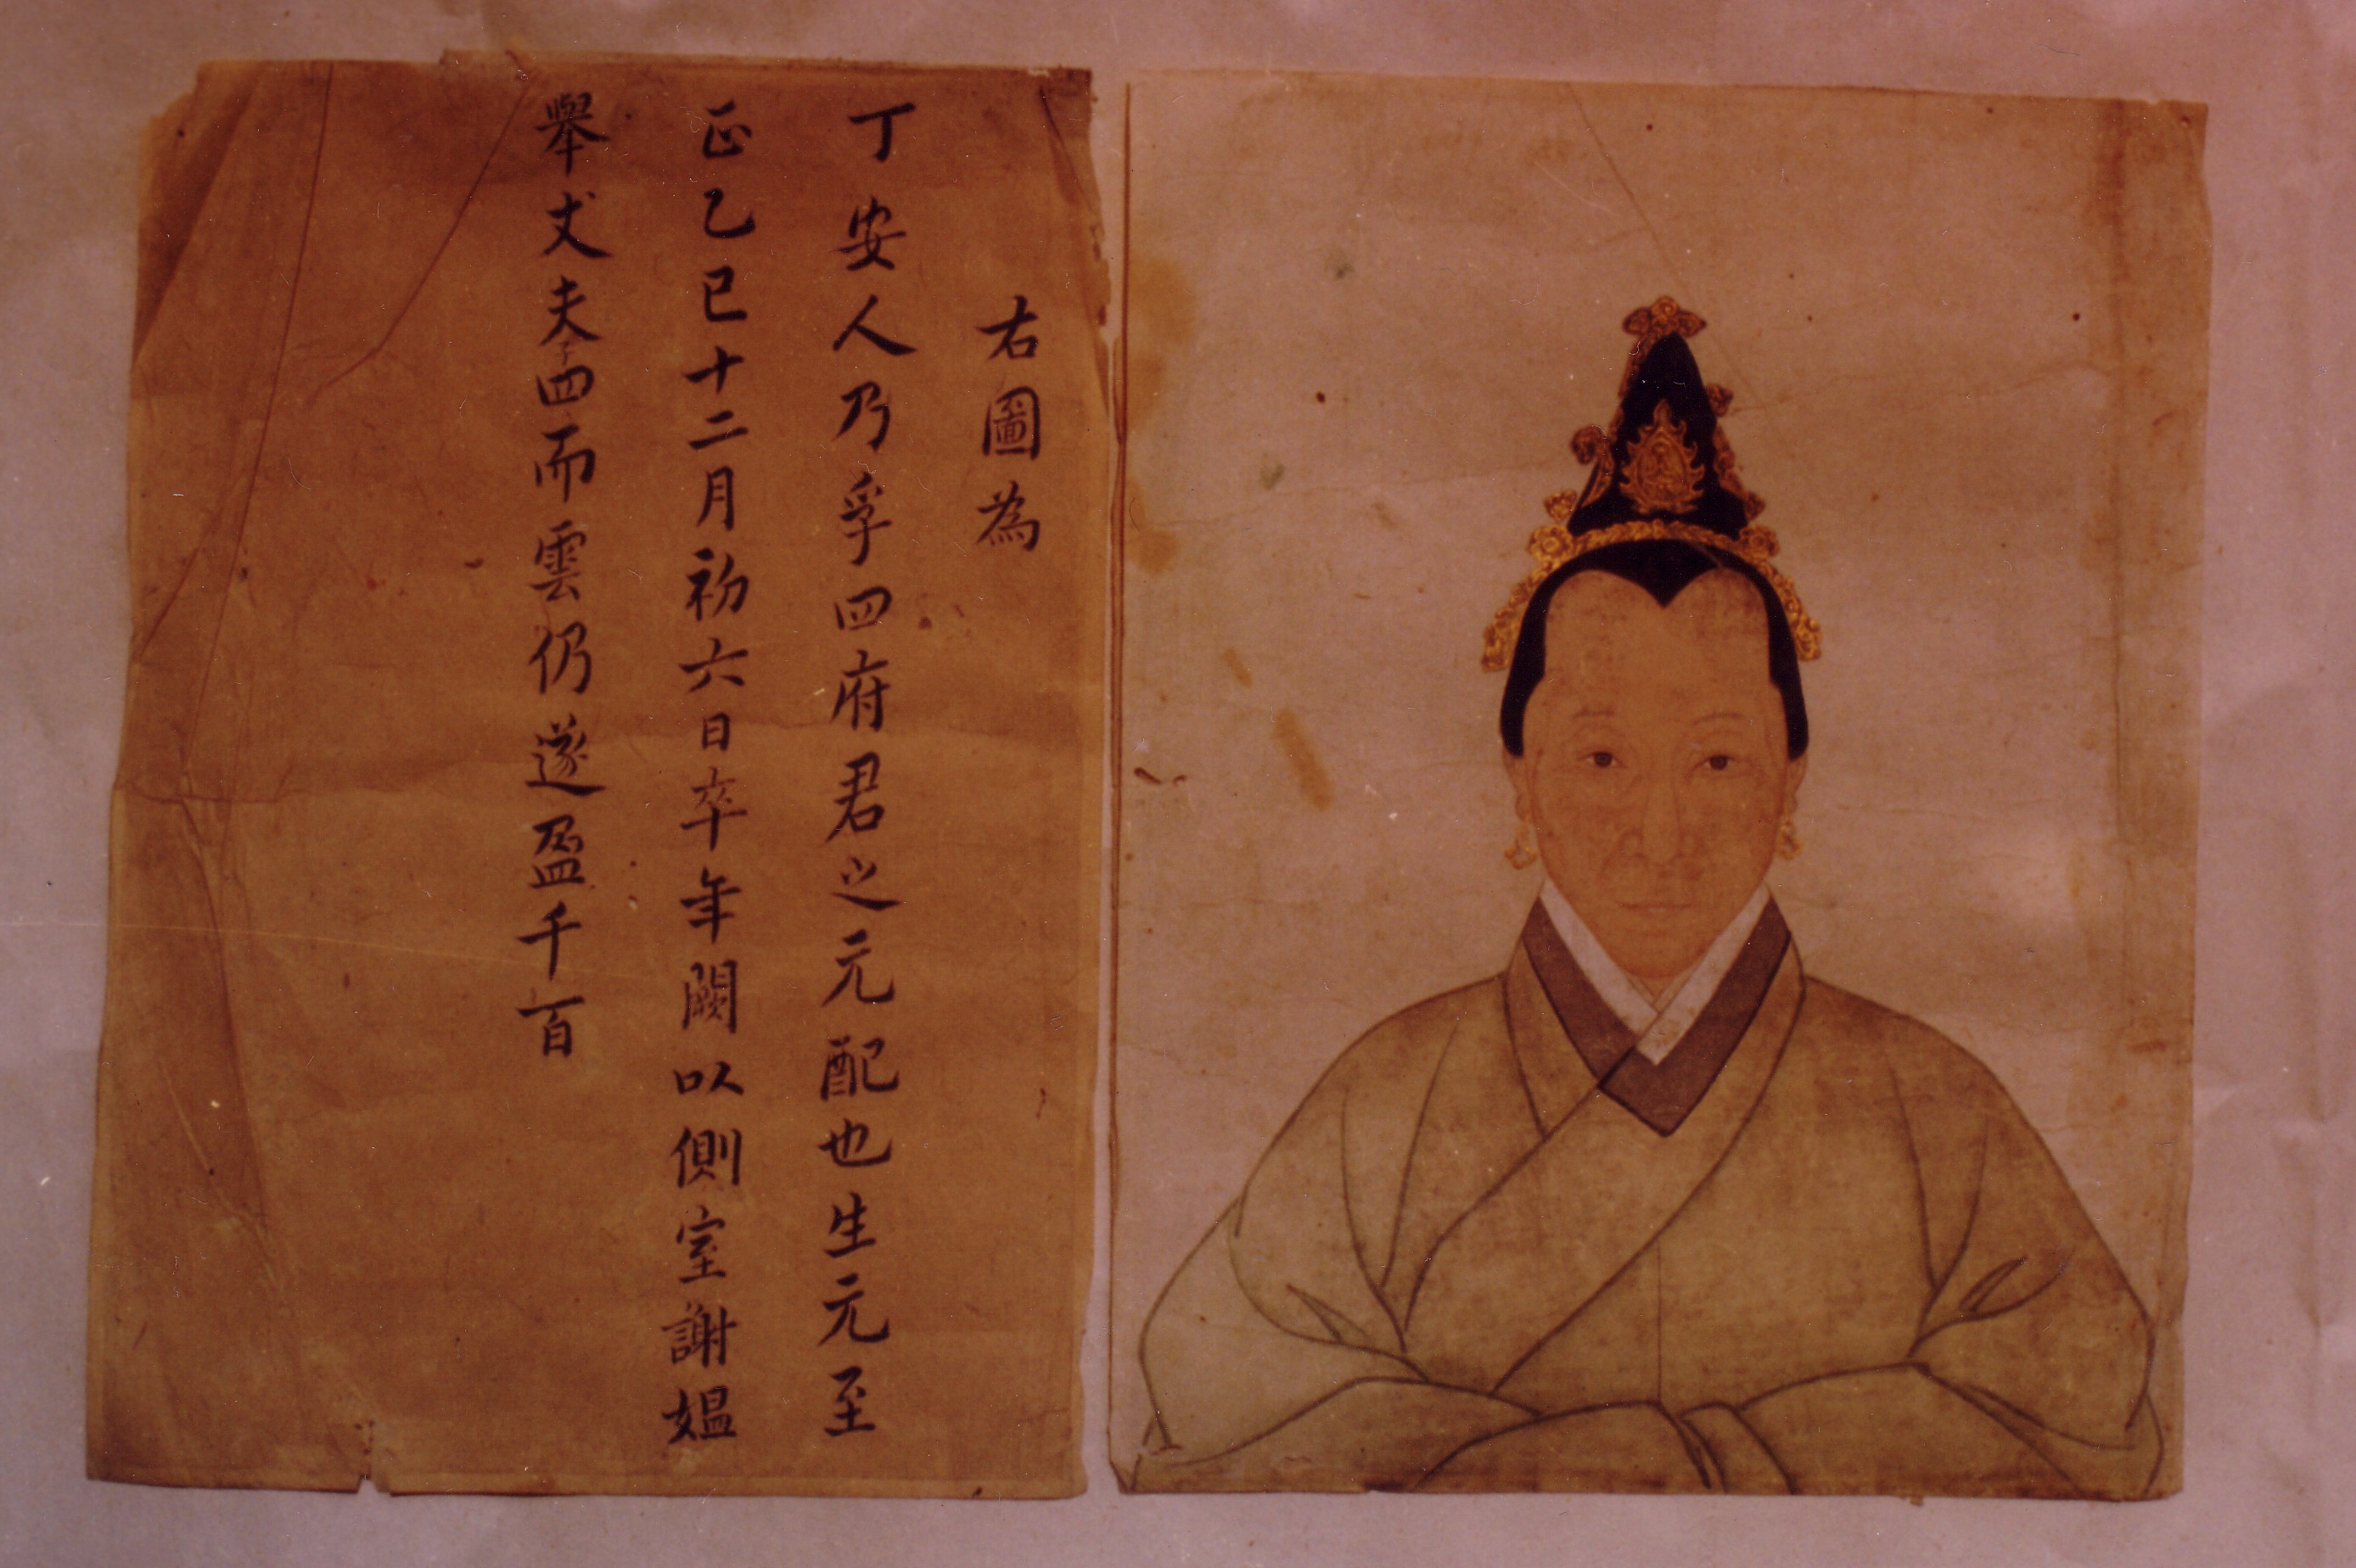 右圖為
丁安人乃孚四府君之元配也生元至
正乙巳十二月初六日卒年闕以側室謝媪
舉丈夫子四而雲仍遂盈千百